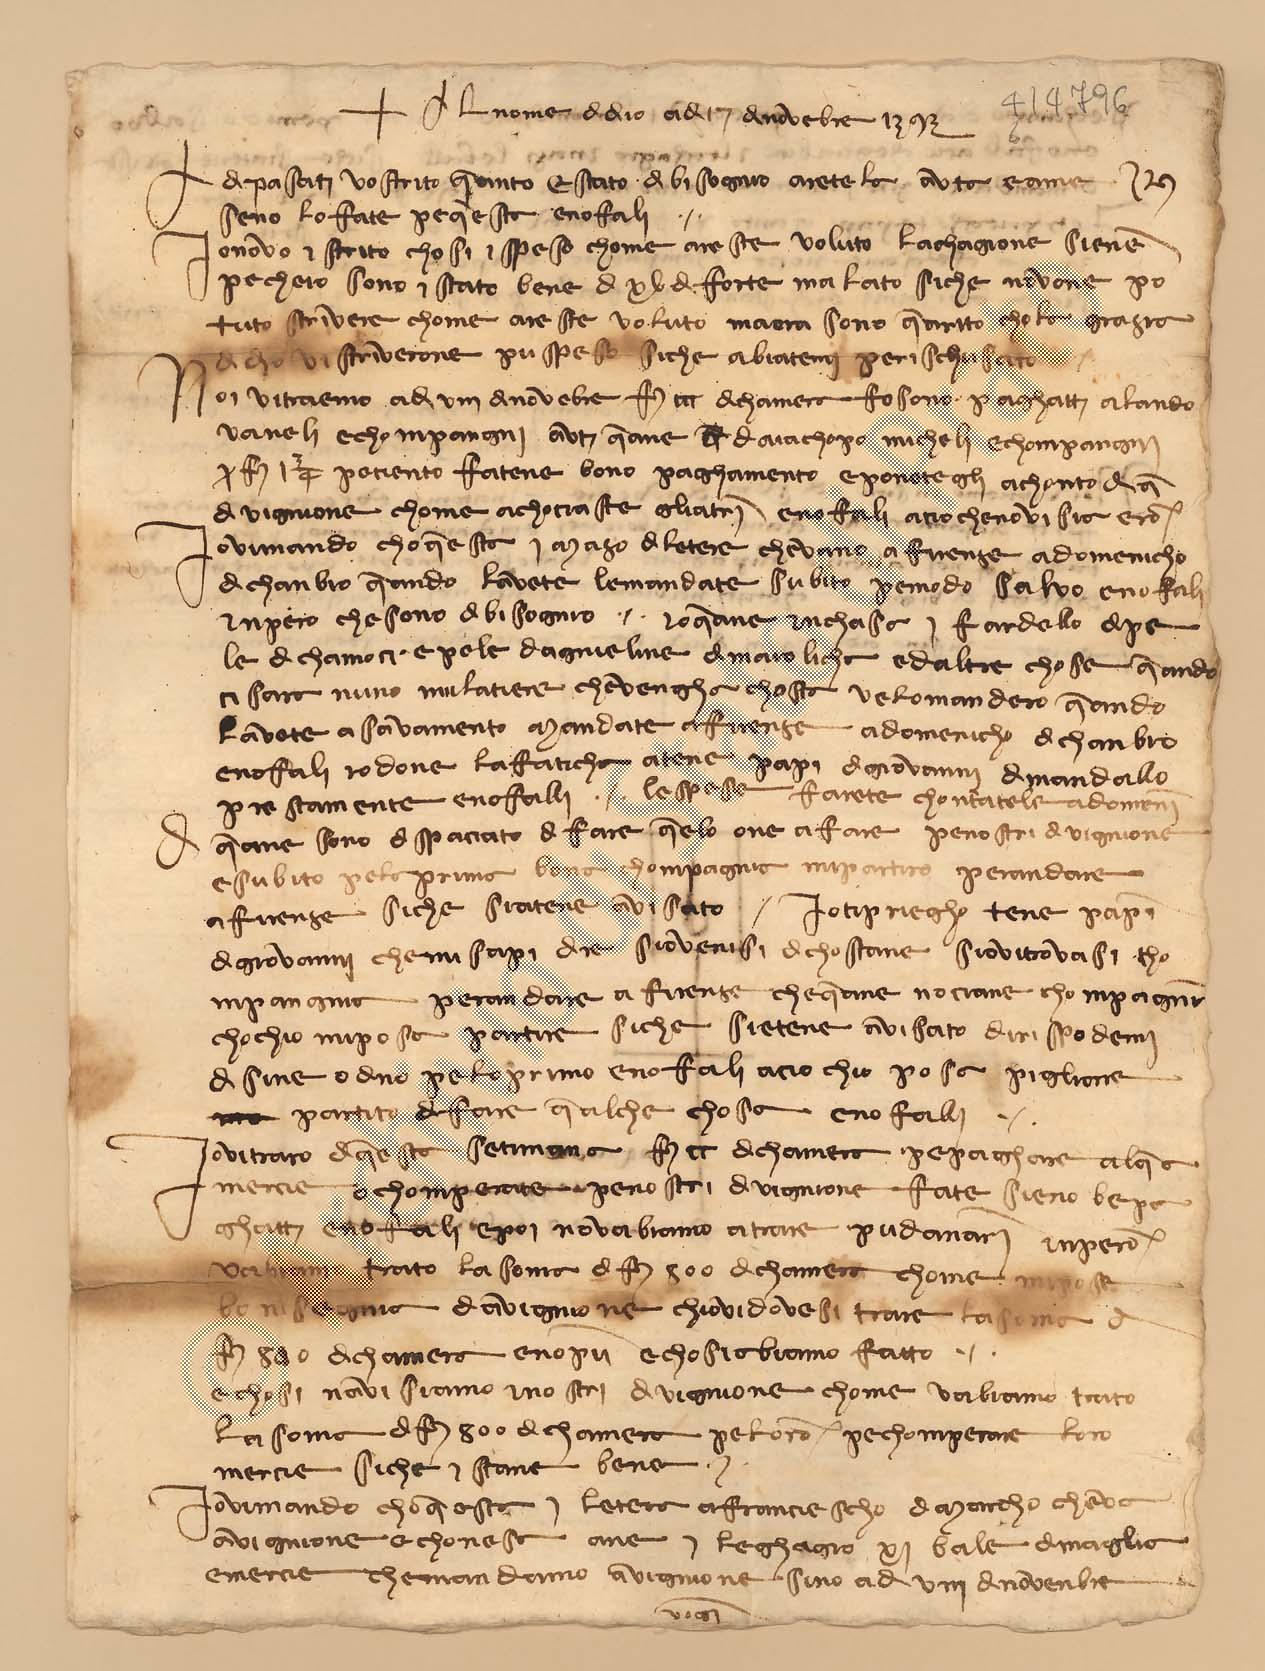 414796
+ Al nome di dio adi 17 di novebre 1393
di pasati vo scrito quanto e stato di bisogno aretelo auto e ame
seno lo fate pe questo e nofali
Io no vo i scrito chosi i speso chome areste voluto la chagione siene
pe cheio sono i stato bene di xv di forte malato siche no vone po
tuto scrivere chome areste voluto ma ora sono guarito cholo grazia
di dio vi scriverone pu speso siche abiatemi per ischusato
Noi vi traemo adi viii di novebre fj ccc di chamera fosono paghati a lando
vaneli e chompangni auti quane da iachopo micheli e chompangni
peciento fatene bono paghamento e ponetegli a chonto di q
di vignione chome a chociaste gliatri e nofali acio che no vi sia erore
Io vi mando cho questa i mazo di letere che vano a firenze a domenicho
di chanbio quando l avete le mandate subito pe modo salvo e nofali
inpero che sono di bisogno io quane in chasa i fardello di pe
le di chamoci e pele d agnieline di maiolicha ed altre chose quando
ci sara niuno mulatiere che vengha chosta ve lo mandero quando
l avete a savamento mandate a firenze a domenicho di chanbio
e nofali io done la faticha a tene papi di giovanni di mandallo
prestamente e nofalli le spese farete chontatele a domenicho
quane sono dispaciato di fare quelo one a fare pe nostri di vignione
e subito pelo primo bono chompagnia mi partiro per andare
a firenze siche siatene avisato Io ti priegho tene papi
di giovanni che mi sapi dire sio venisi di chostane sio vi trovasi cho
mpangnia per andare a firenze che quane no ciane chompagnia
cho chio mi posa partire siche sietene avisato di rispodemi
di sine o di no pelo primo e nofali acio chio posa pigliare
partito di fare qualche chosa e nofalli
Io vi traro di questa setimana fj cc di chamera pe paghare alqua
mercie o chomperate pe nostri di vignione fate sieno be pa
ghati e nofali e poi no v abiamo a trare pu danari inpero
v abiamo trato la soma di fj 800 di chamera chome mi pose
bonisegnia d avignione chio vi dovesi trare la soma di
fj 800 di chamera e no pu e chosi abiamo fatto
e chosi n avisiamo i nostri di vignione chome v abiamo trato
la soma di fj 800 di chamera pe loro pe chomperare loro
mercie siche i stane bene
Io vi mando cho questa i letera a franciescho di marcho che va
a vignione e chonesa ane i leghagio xi bale di maglia
e mercie che mandamo a vignione sino adi viii di novenbre